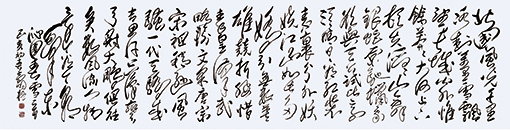 北國風光千里
冰封萬里雪飄
望長城內外惟
餘莽莽大河上下
頓失滔滔山舞
銀蛇原馳蠟象
欲與天公試比高
須晴日看紅裝
素裹分外妖
嬈江山如此多
嬌引無數英
雄競折腰惜
秦皇漢武
略輸文采唐宗
宋祖稍遜風
騷一代天驕成
吉思汗只識彎
弓射大雕俱往
矣數風流人物
還看今朝
沁園春雪